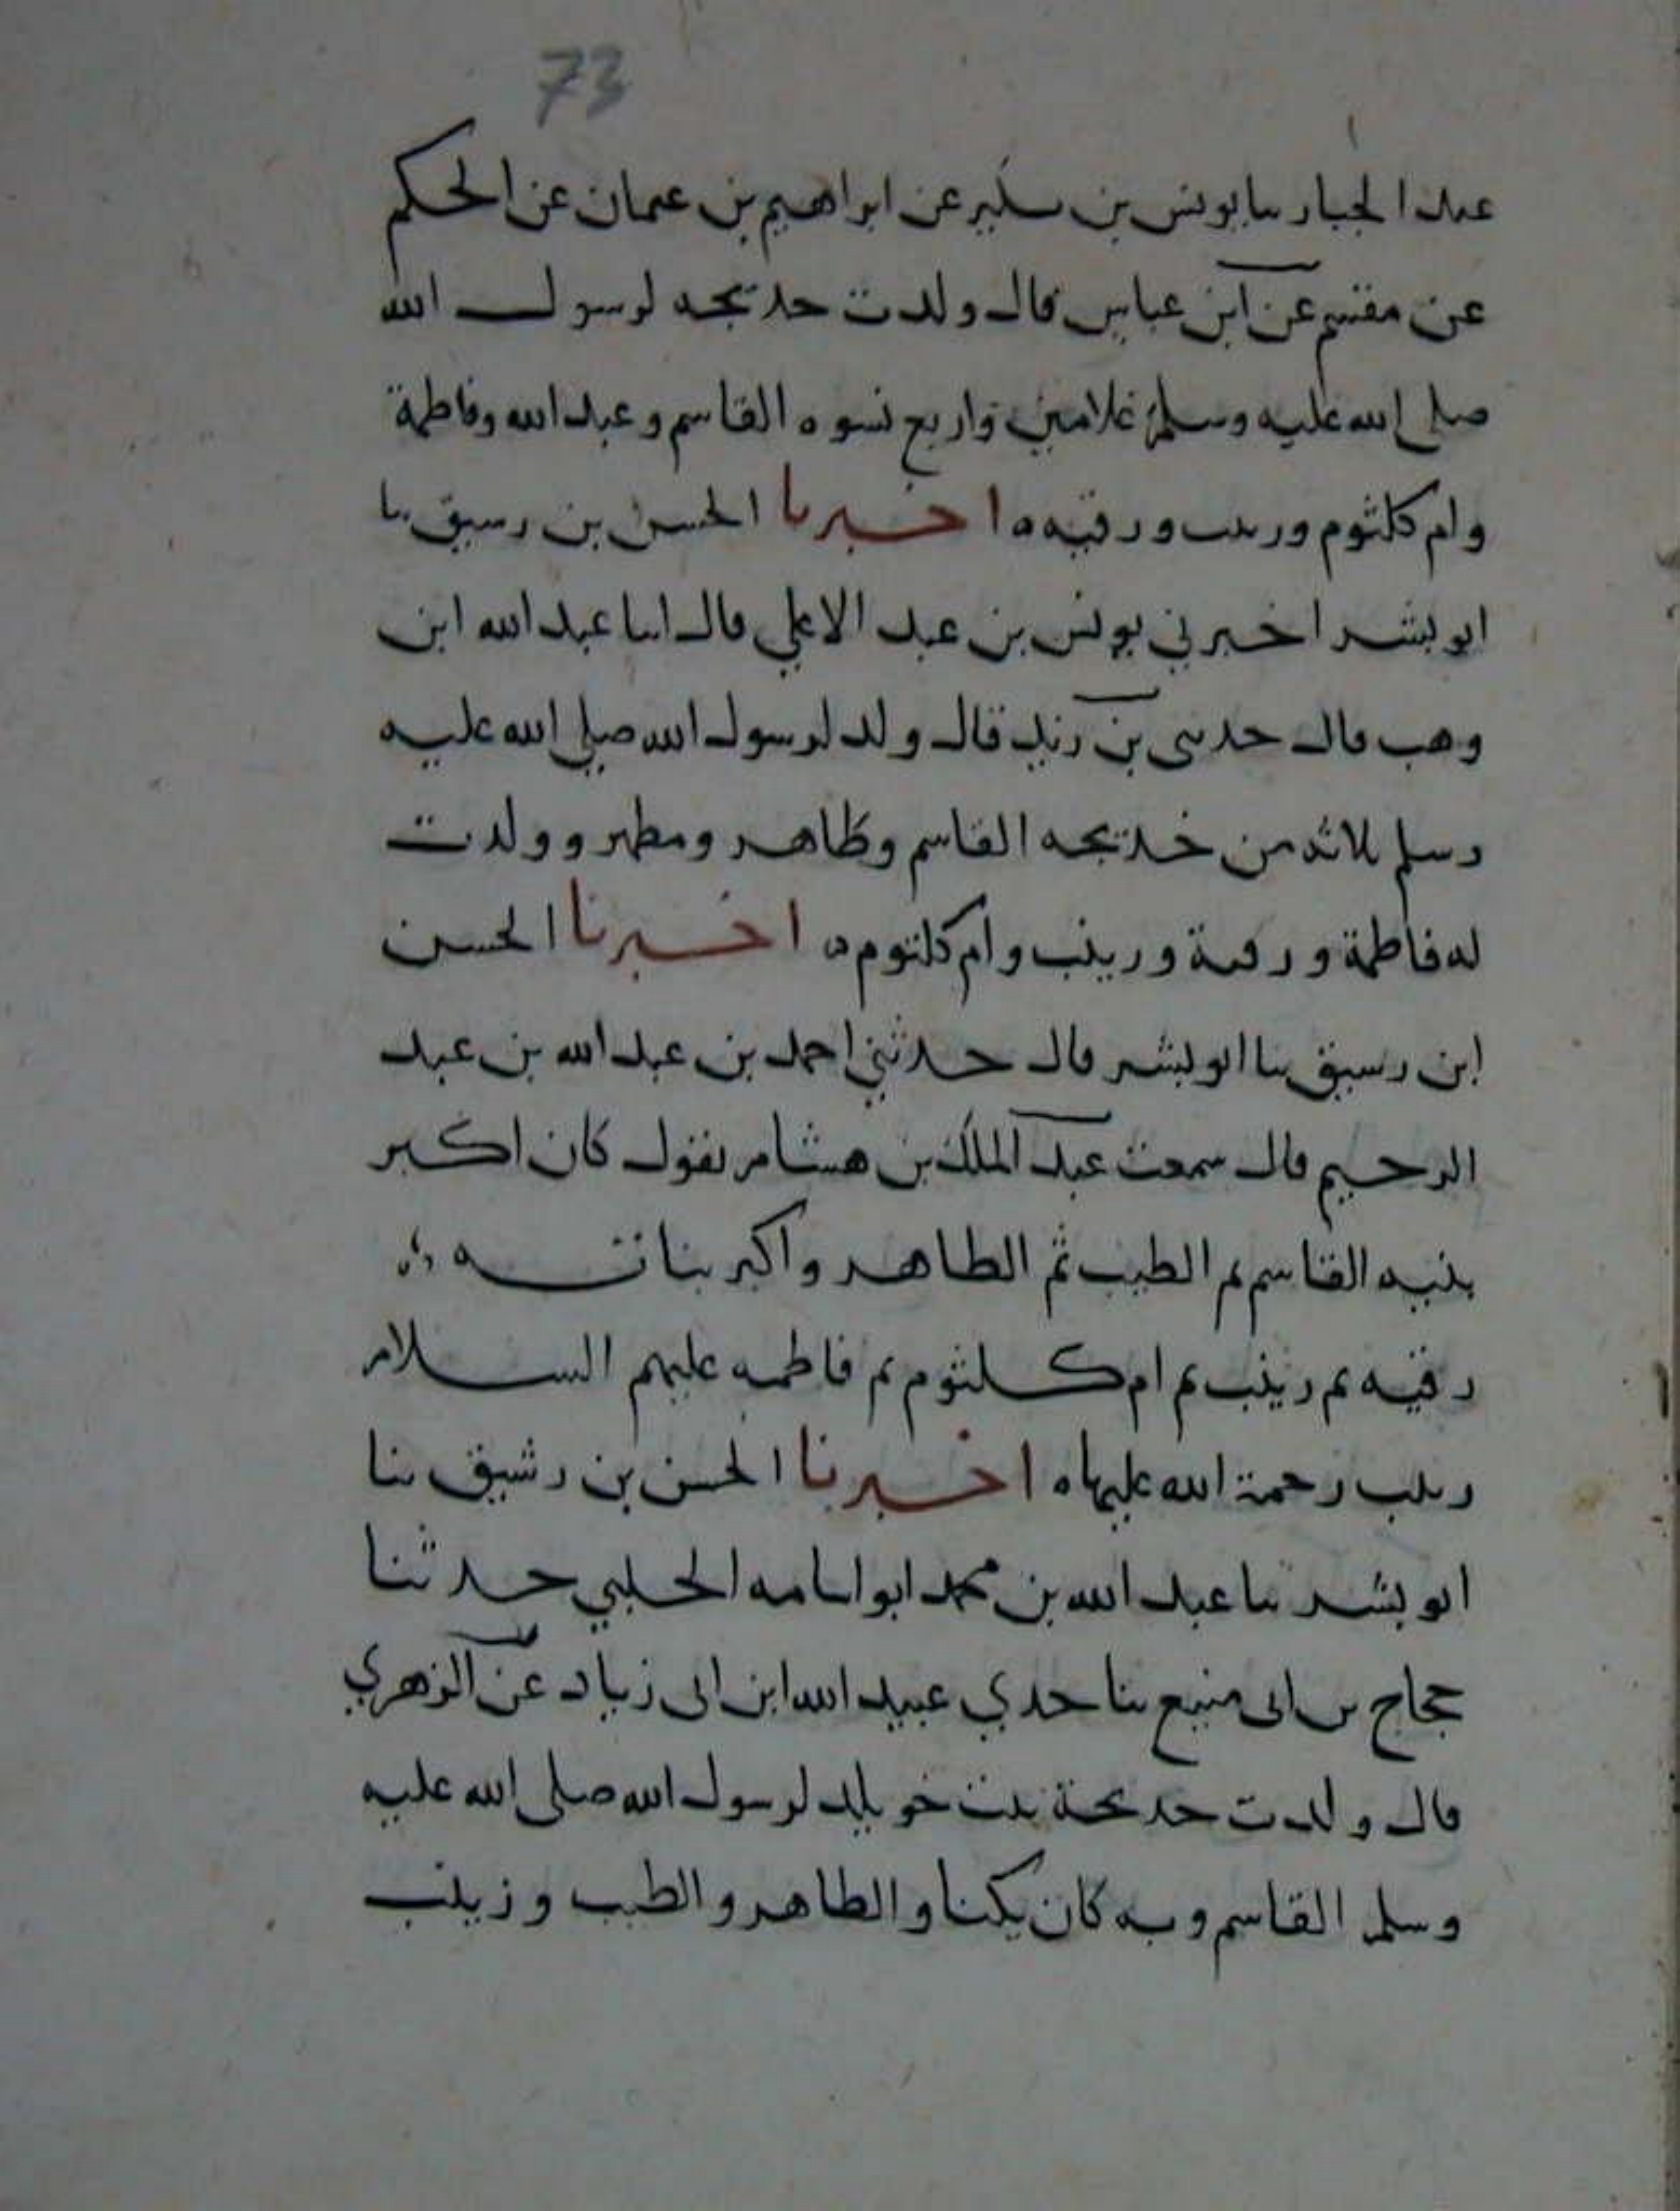 73
عبد الجبار نا يونس بن بكير عن ابراهيم بن عثمان عن الحكم
عن مقسم عن ابن عباس قال ولدت خديجه لرسول الله
صلى الله عليه وسلم غلامين واربع نسوه القاسم وعبد الله وفاطمة
وام كلثوم وزينب ورقيه ه اخبرنا الحسن بن رسيق نا
ابو بشر اخبرني يونس بن عبد الاعلى قال انبا عبد الله ابن
وهب قال حدثني بن زيد قال ولد لرسول الله صلى الله عليه
وسلم ثلاثه من خديجه القاسم وطاهر ومطهر وولدت
له فاطمة ورقية وزينب وام كلثوم ه اخبرنا الحسن
ابن رسيق نا ابو بشر قال حدثني احمد بن عبد الله بن عبد
الرحيم قال سمعت عبد الملك بن هشام يقول كان اكبر
بنيه القاسم ثم الطيب ثم الطاهر واكبر بناته
رقيه ثم زينب ثم ام كلثوم ثم فاطمه عليهم السلام
زينب رحمة الله عليها ه اخبرنا الحسن بن رشيق ثنا
ابو بشر ثنا عبد الله بن محمد ابو اسامه الحلبي حدثنا
حجاج بن ابى منيع ثنا جدي عبيد الله ابن ابى زياد عن الزهري
قال ولدت خديجة بنت خويلد لرسول الله صلى الله عليه
وسلم القاسم وبه كان يكنا والطاهر والطيب وزينب